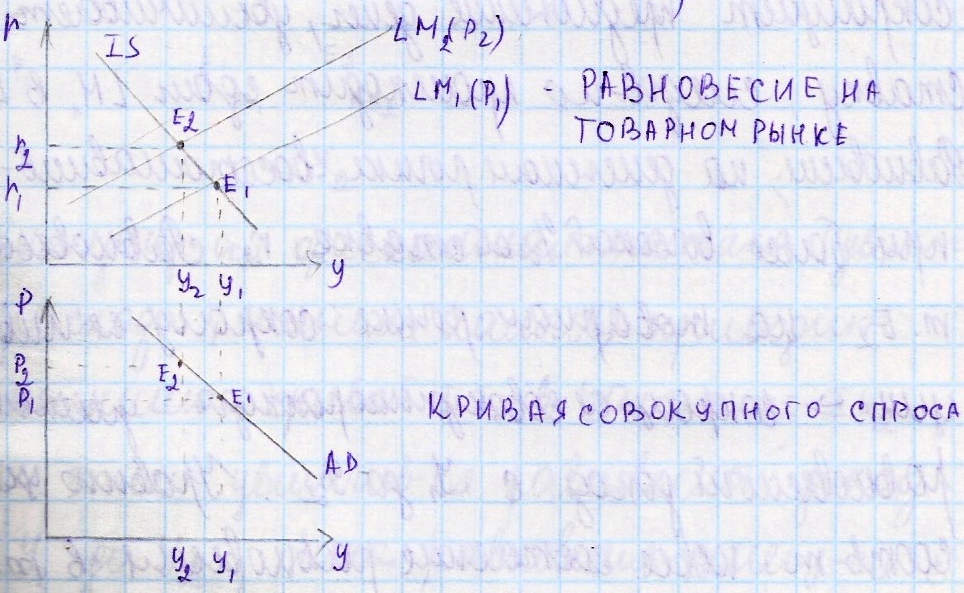 r
IS
LM₂(P₂)
LM₁(P₁) - РАВНОВЕСИЕ НА
ТОВАРНОМ РЫНКЕ
E₂
r₂
r₁
E₁
y₂ y₁
y
P
P₂
P₁
E₂
E₁
КРИВАЯ СОВОКУПНОГО СПРОСА
AD
y₂ y₁
y